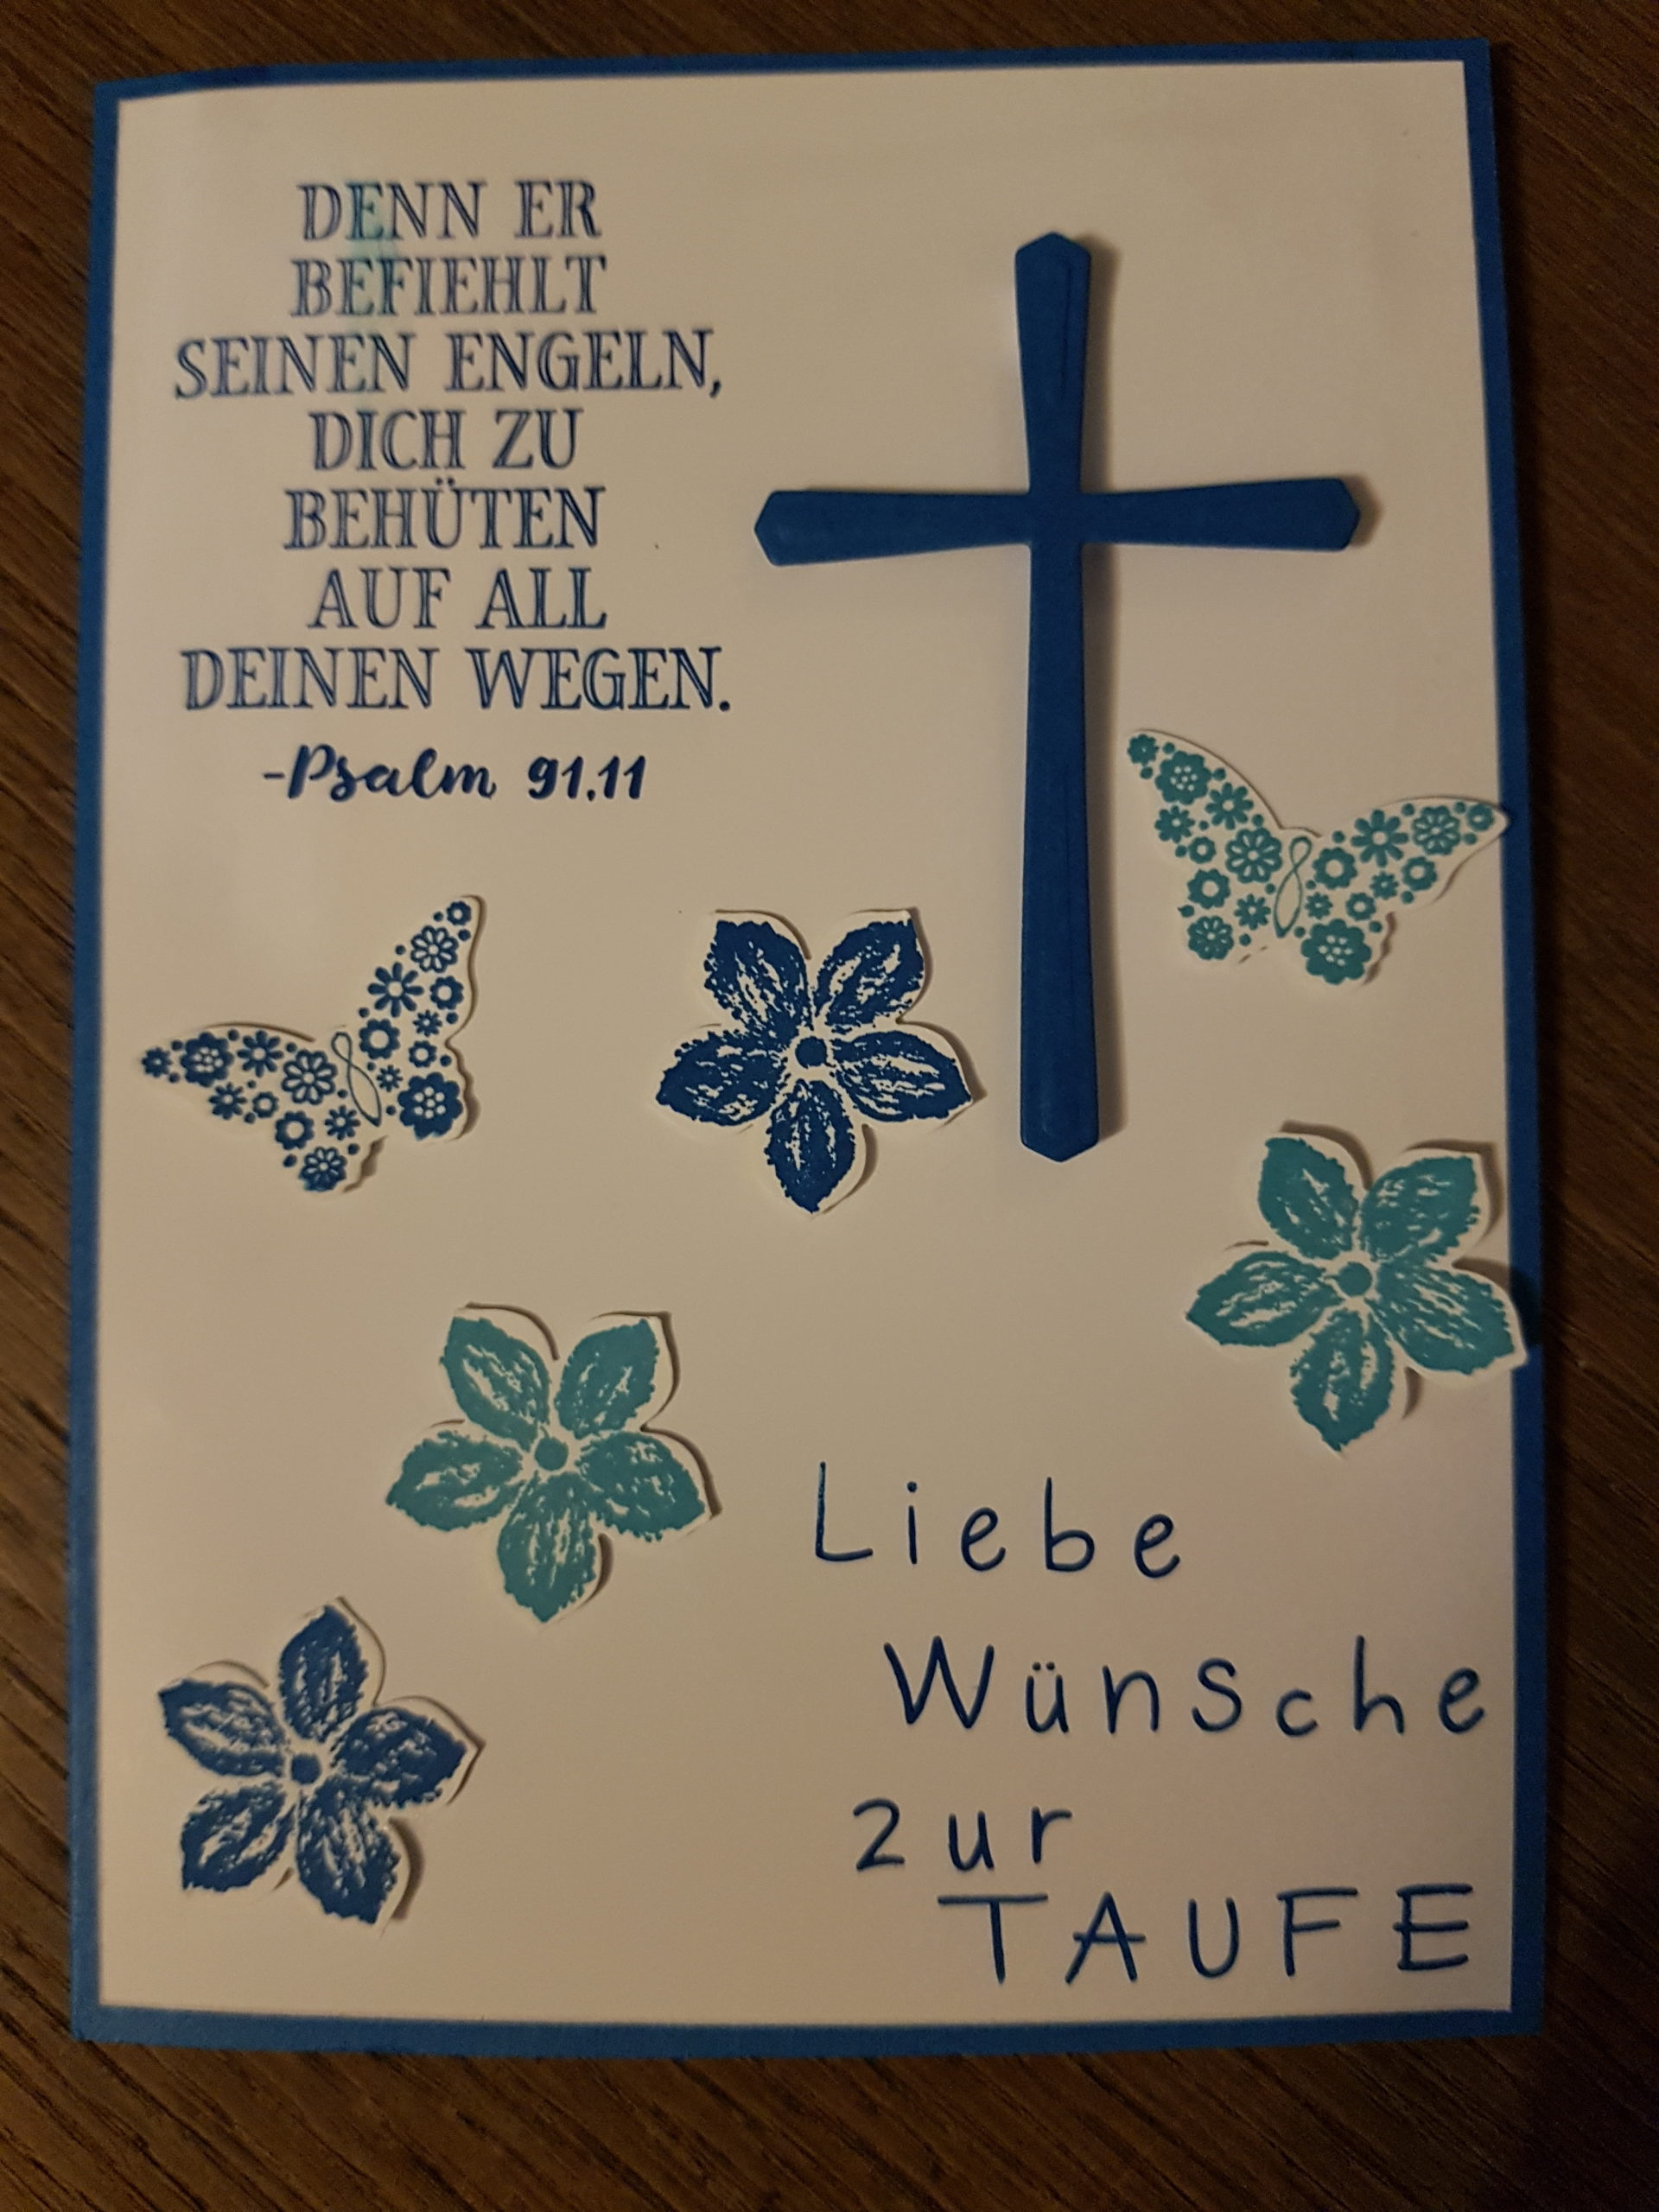 DENN ER
BEFIEHLT
SEINEN ENGELN,
DICH ZU
BEHÜTEN
AUF ALL
DEINEN WEGEN.
-Psalm 91,11
Liebe
Wünsche
zur
TAUFE